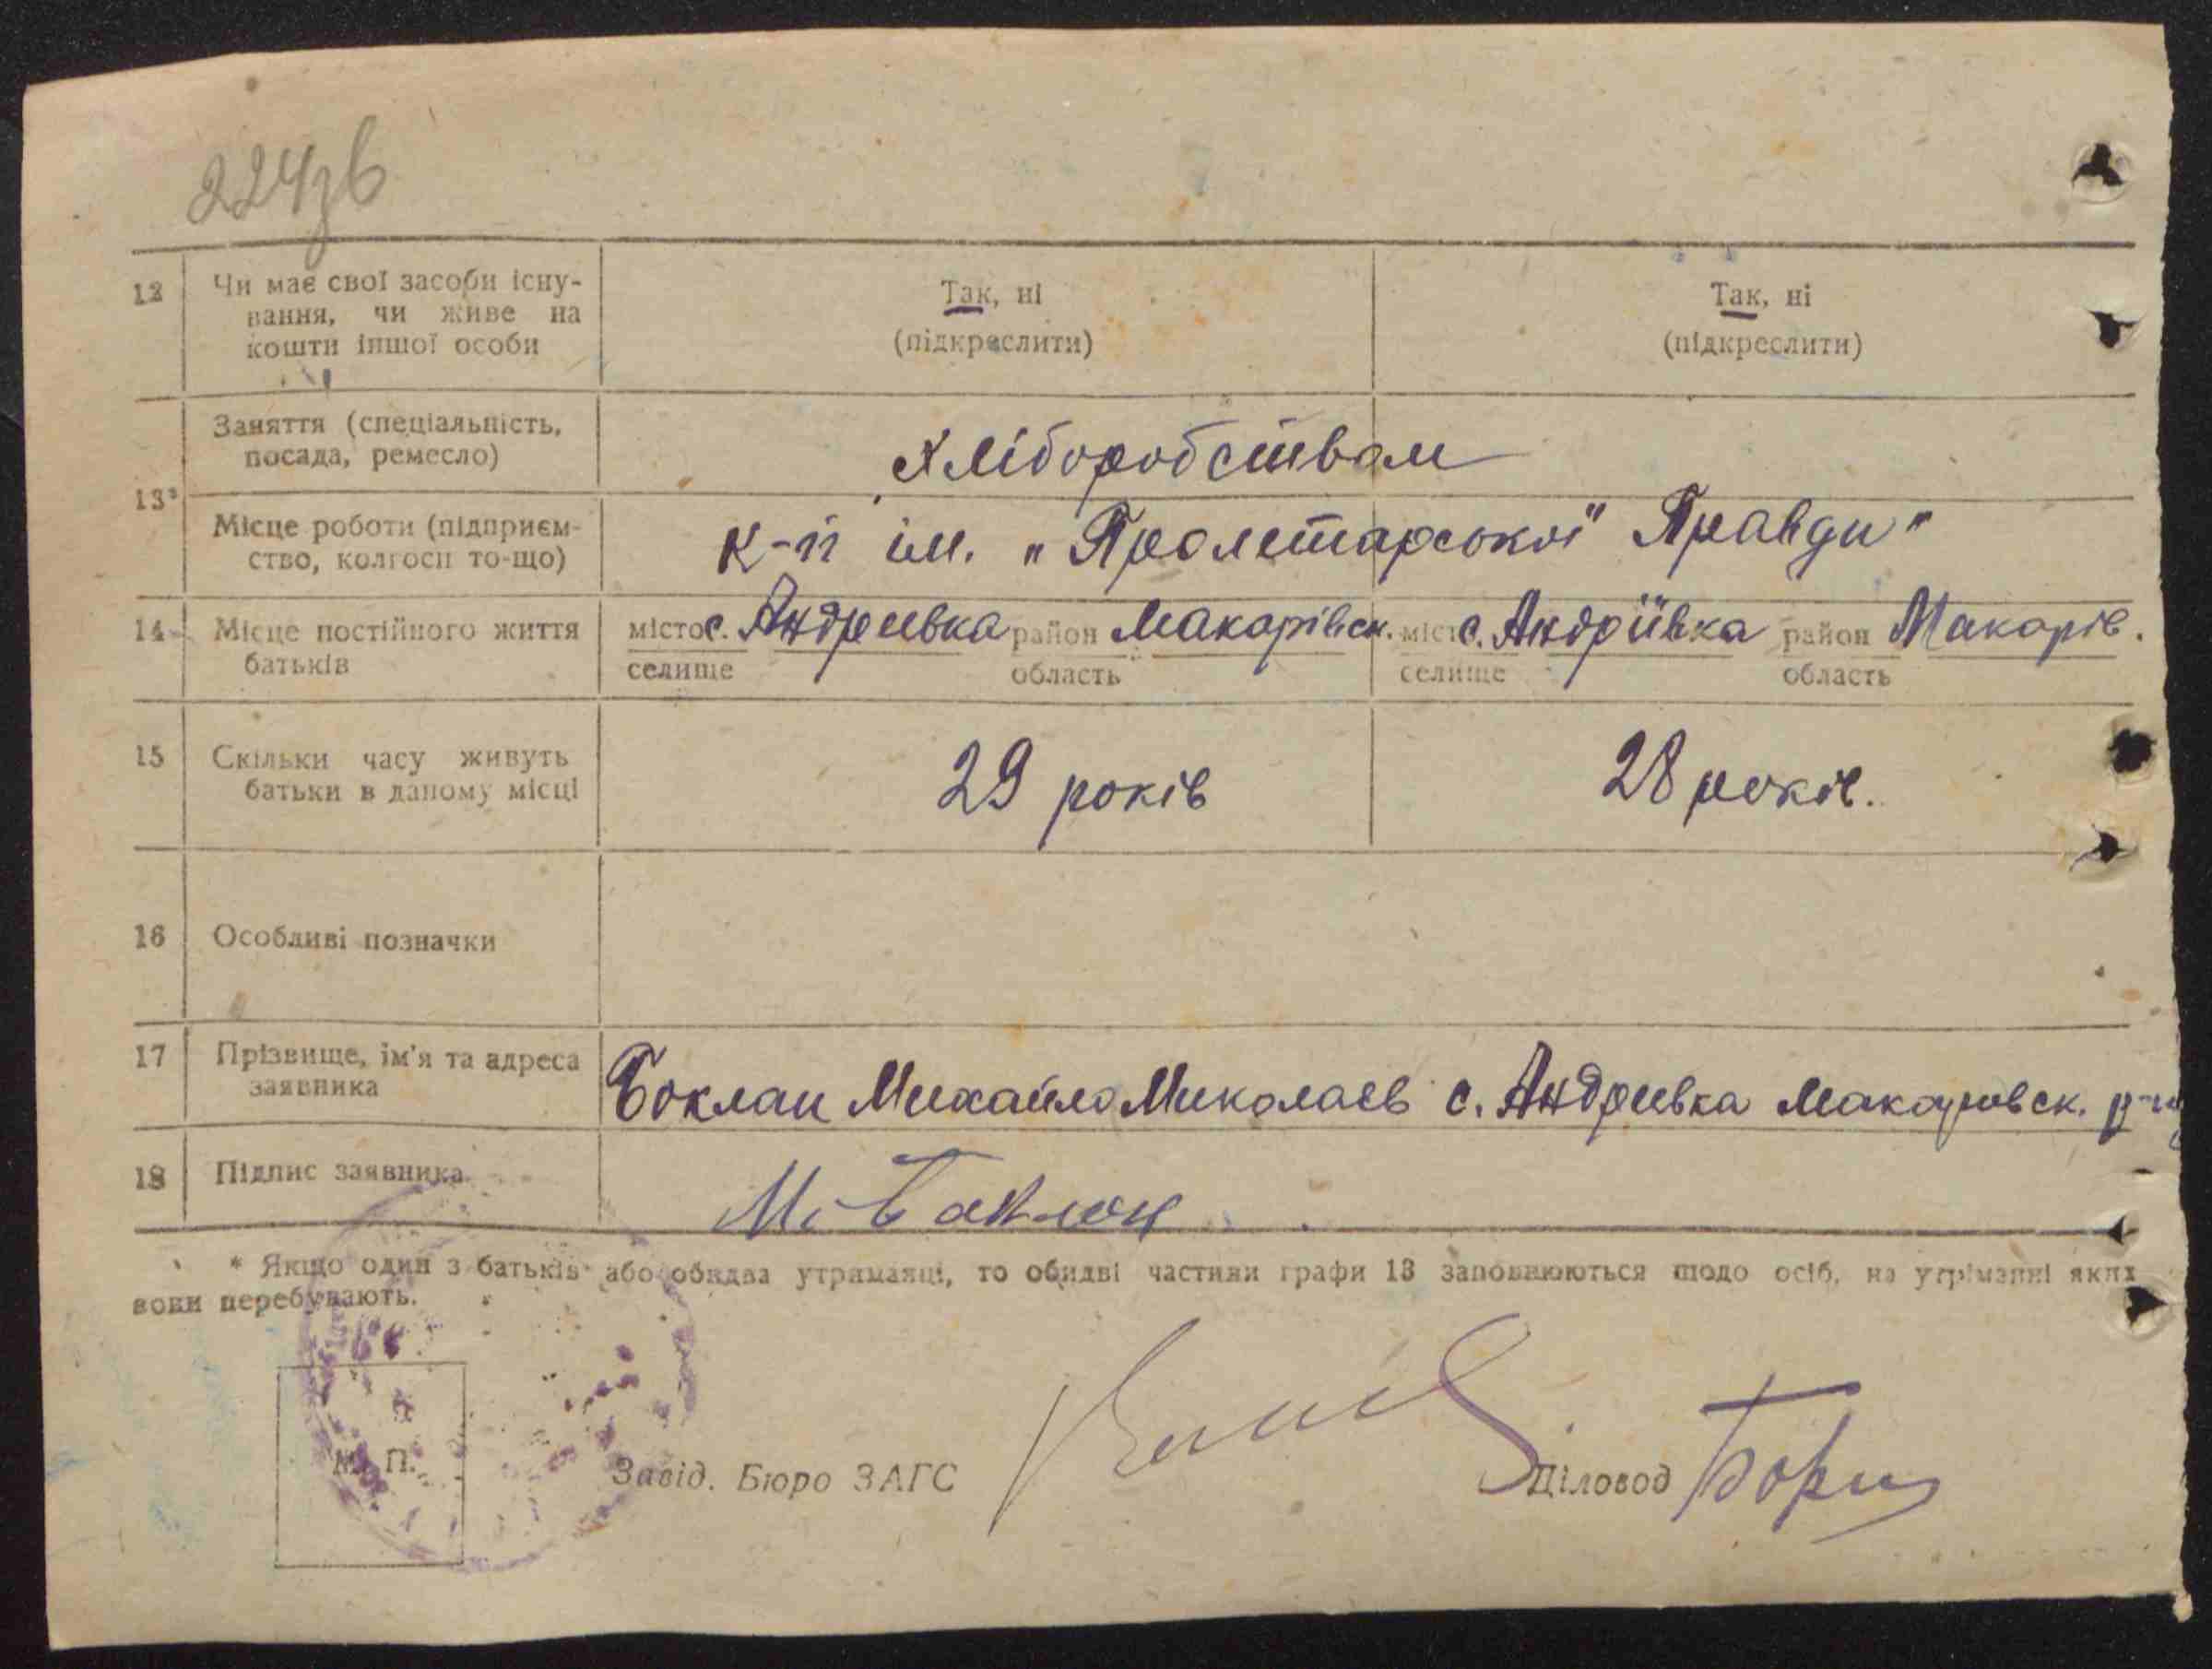 224зв
12 Чи має свої засоби існу- Так, ні Так, ні
вання, чи живе на
кошти іншої особи (підкреслити) (підкреслити)
Заняття (спеціальність,
посада, ремесло) Хліборобством
13*
Місце роботи (підприєм- к-п ім. „Пролетарської" Правди"
ство, колгосп то-що)
14 Місце постійного життя місто с. Андреивка район Макарівск. місто с. Андріївка район Макарів.
батьків селище область селище область
15 Скільки часу живуть 29 років 28 років.
батьки в даному місці
16 Особливі позначки
17 Прізвище, ім'я та адреса
заявника Боклан Михайло Миколаєв с. Андреивка Макаровск. р-ну
18 Підпис заявника М. Баклан
* Якщо один з батьків або обидва утриманці, то обидві частини графи 13 заповнюються щодо осіб, на утріманні яких
вони перебувають.
М. П. Завід. Бюро ЗАГС Діловод